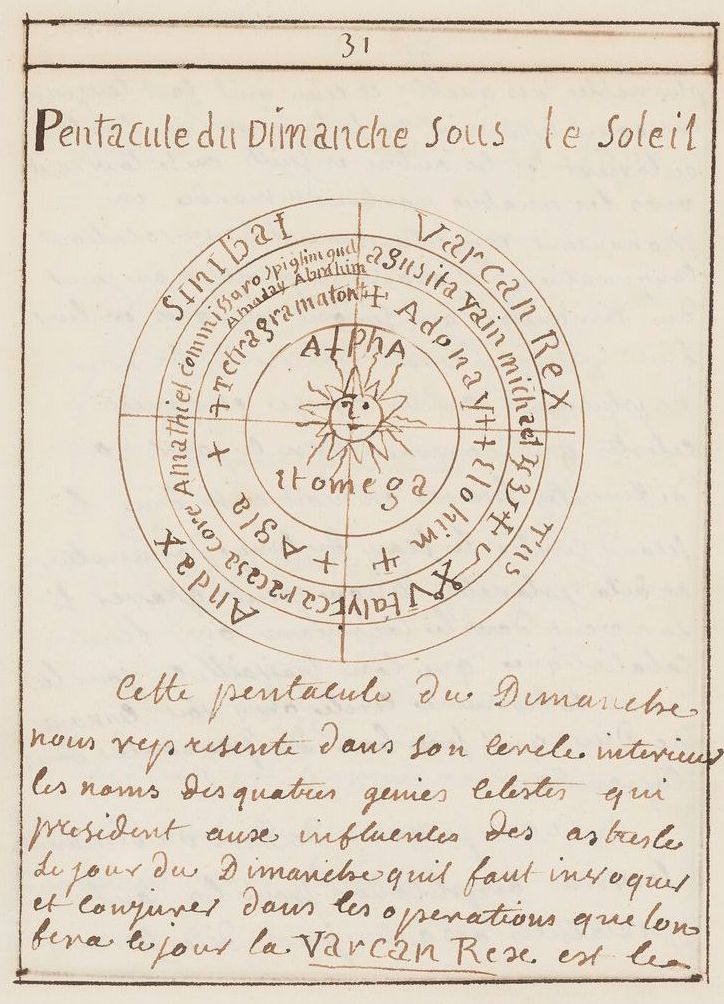 31
Pentacule du Dimanche sous le Soleil
Varcan Rex
Tus
Andax
Sinibat
agusita yain michael
Vtalyr
caracasa core Amathiel commissaros
Amaday Abrahim
+ Adonay ++ Elohim +
+ Agla + + tetragramaton +
AlphA
et omega
Cette pentacule du Dimanche
nous represente dans son cercle interieur
les noms des quatres genies celestes qui
president aux influences des astres le
Le jour du Dimanche quil faut invoquer
et conjurer dans les operations que lon
fera le jour la Varcan Rex est le